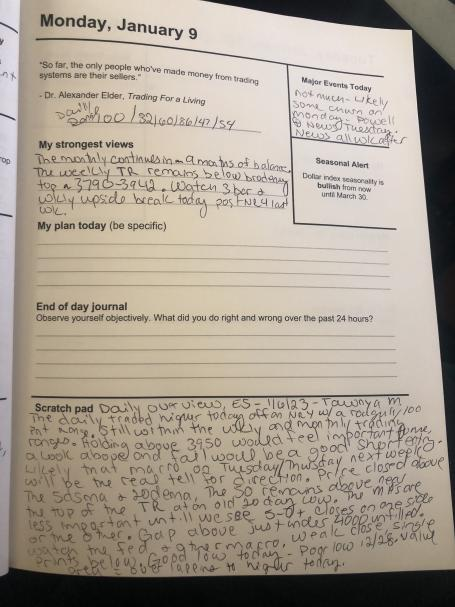 Monday, January 9
"So far, the only people who've made money from trading
systems are their sellers."
- Dr. Alexander Elder, Trading For a Living
Daily
100/32/60/86/47/54
Major Events Today
not much - likely
some churn on
monday - Powell
& News Tuesday.
News all wk after
Seasonal Alert
Dollar index seasonality is
bullish from now
until March 30.
My strongest views
The monthly continues in 9 months of balance.
The weekly TR remains below
top 3790-3942. Watch 3 bar &
wkly upside break today post last
wk.
My plan today (be specific)
End of day journal
Observe yourself objectively. What did you do right and wrong over the past 24 hours?
Scratch pad Daily overview, ES - 1/6/23 - Tawnya M
The daily traded higher today off an w/ a roughly 100
pnt range. Still within the wkly and monthly trading
ranges. Holding above 3950 would feel important
a look above and fail would be a good short entry.
Likely that macro on Tuesday/Thursday next week
will be the real tell for direction. Price closed above
The 5dsma & 20dema. The 50 remains above near
the top of the TR at an old 20 day low. The MAs are
less important until we see 5-0+ closes on one side
or the other. Gap above just under 4000 unfilled.
watch the fed & other macro. weak close single
prints below. Good low today - Poor low 12/28. value
area = overlapping to higher today.